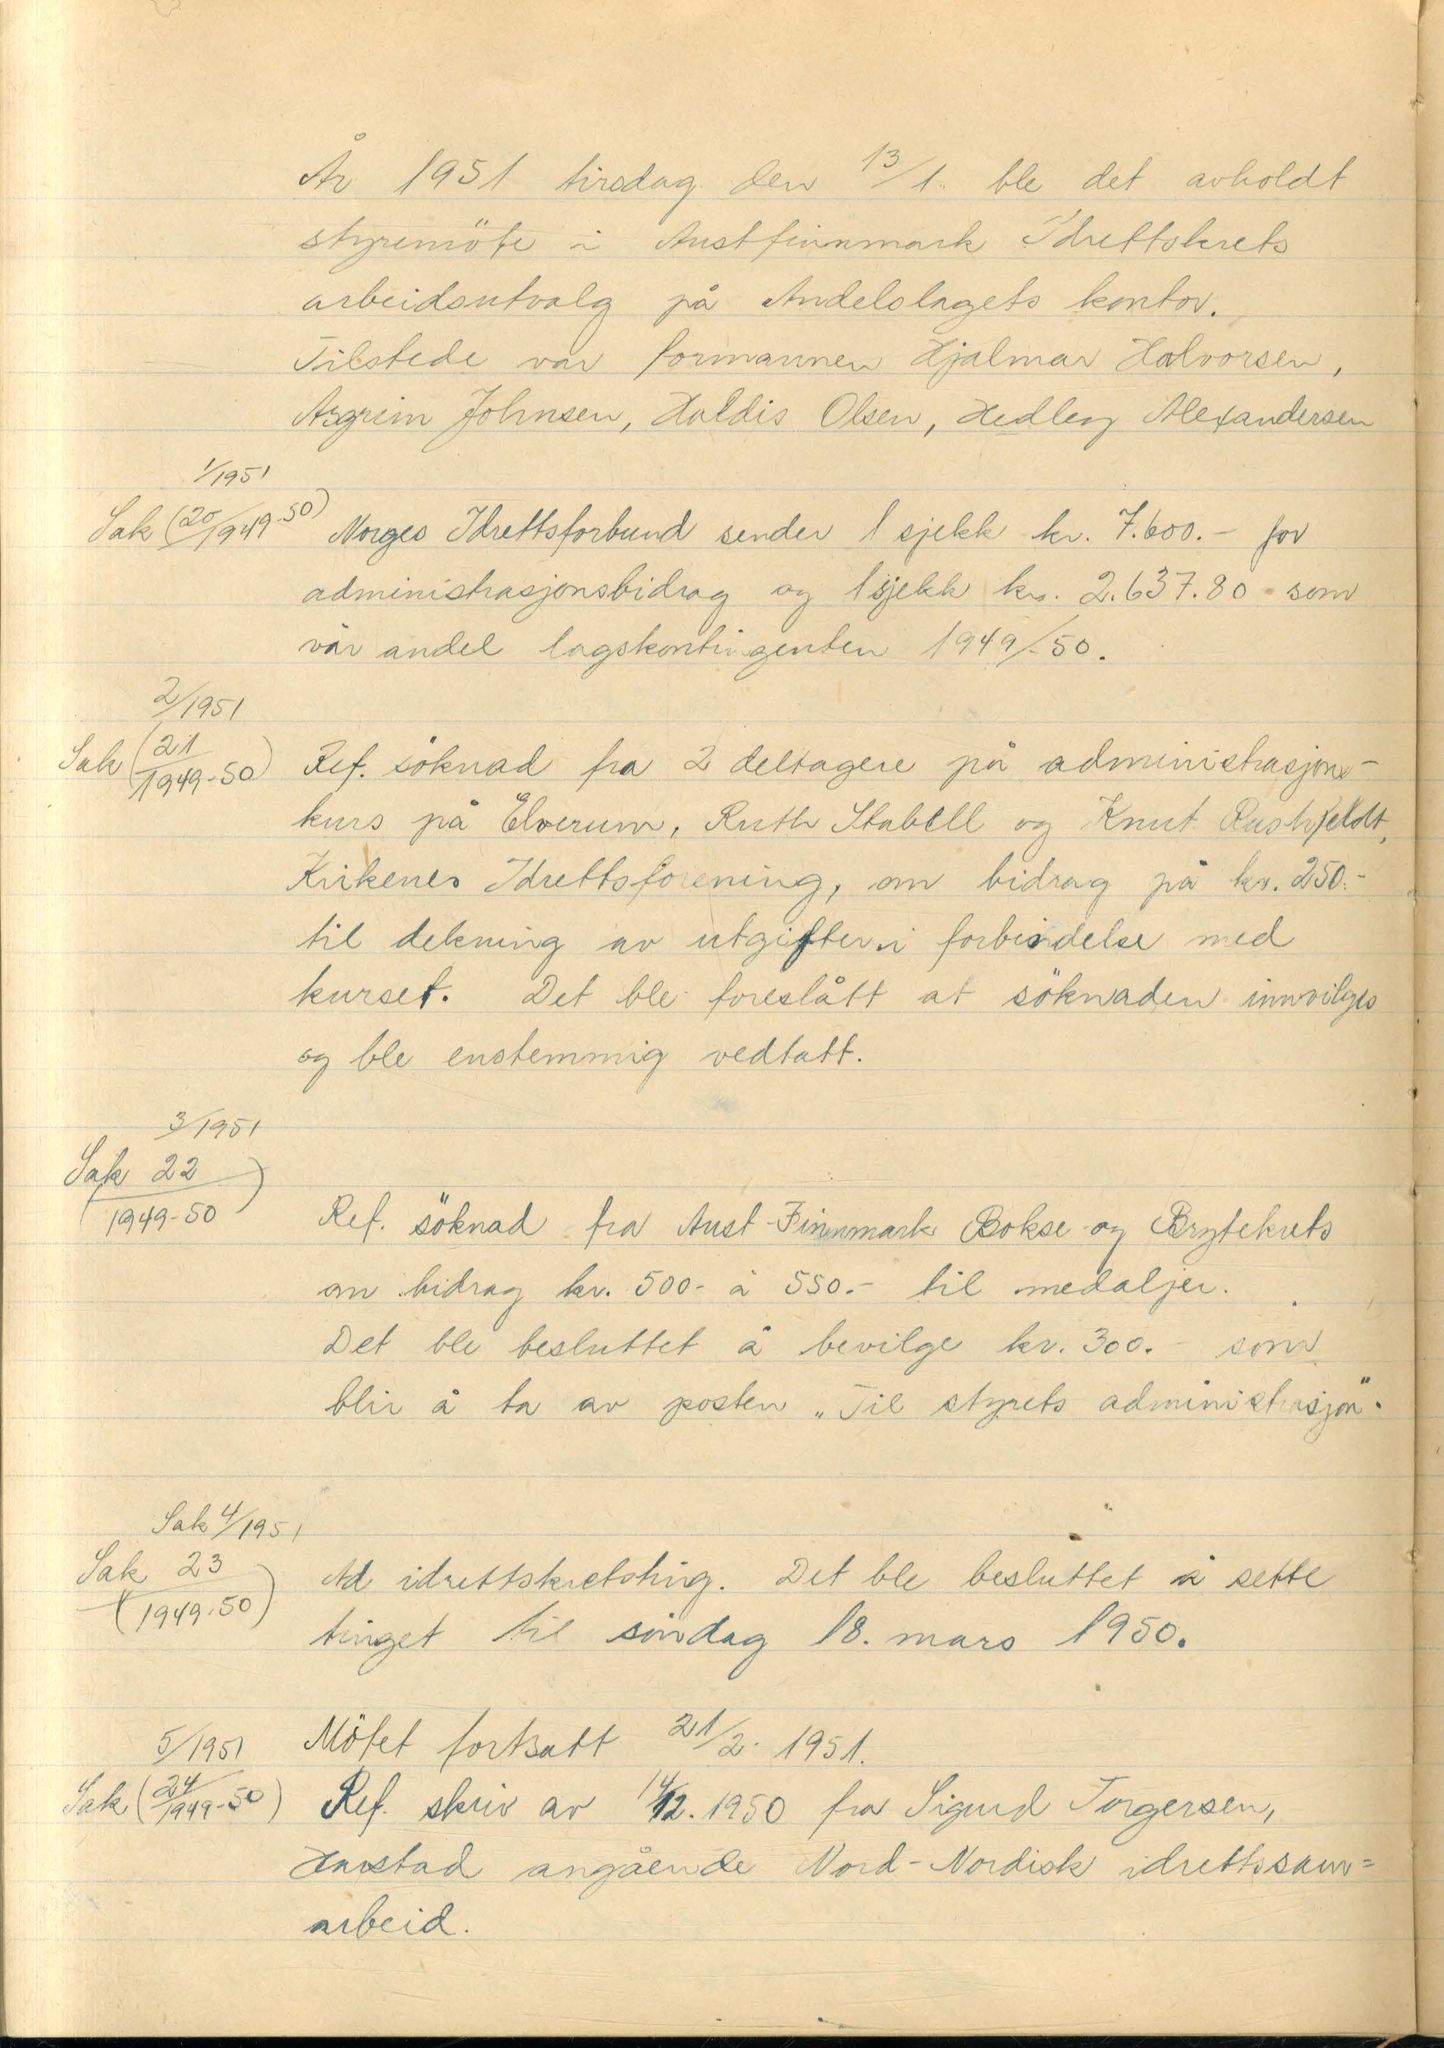 År 1951 tirsdag den 13/1. ble det avholdt
styremöte i Austfinnmark Idrettskrets
arbeidsutvalg på Andelslagets kontor.
Tilstede var formannen Hjalmar Halvorsen,
Asgrim Johnsen, Haldis Olsen, Hedley Alexandersen
1/1951
Sak (20/1949-50) Norges Idrettsforbund sender 1 sjekk kr. 7.600.- for
administrasjonsbidrag og 1 sjekk kr. 2.637.80 som
vår andel lagskontingenten 1949/-50.
2/1951
Sak (21/1949-50) Ref. söknad fra 2 deltagere på administrasjons-
kurs på Elverum, Ruth Stabell og Knut Rushfeldt,
Kirkenes Idrettsforening, om bidrag på kr. 250.-
til dekning av utgifter i forbindelse med
kurset. Det ble foreslått at söknaden innvilges
og ble enstemmig vedtatt.
3/1951
Sak (22/1949-50)
Ref. söknad fra Aust-Finnmark Bokse og Brytekrets
om bidrag kr. 500- à 550.- til medaljer.
Det ble besluttet å bevilge kr. 300.- som
blir å ta av posten „Til styrets administrasjon".
Sak 4/1951
Sak (23/1949-50) Ad idrettskretsting. Det ble besluttet å sette
tinget til söndag 18. mars 1950.
Mötet fortsatt 21/2. 1951.
5/1951
Sak (24/1949-50) Ref. skriv av 14/12. 1950 fra Sigurd Torgersen,
Harstad angående Nord-Nordisk idrettssam=
arbeid.